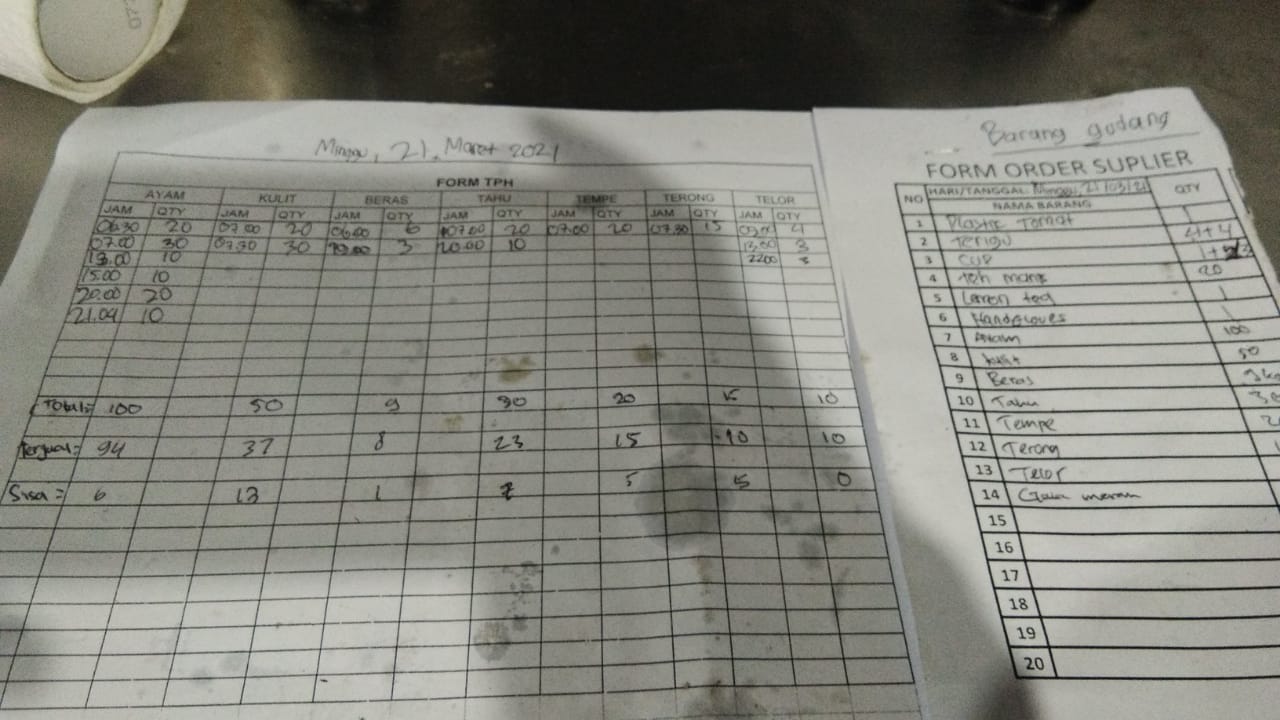 Minggu, 21. Maret 2021
FORM TPH
AYAM KULIT BERAS TAHU TEMPE TERONG TELOR
JAM QTY JAM QTY JAM QTY JAM QTY JAM QTY JAM QTY JAM QTY
06.30 20 07.00 20 06.00 6 07.00 20 07.00 20 07.30 15 07.00 4
07.00 30 07.30 30 19.00 3 20.00 10 13.00 3
13.00 10 2200 3
15.00 10
20.00 20
21.09 10
Total = 100 50 9 30 20 15 10
Terjual = 94 37 8 23 15 10 10
Sisa = 6 13 1 7 5 5 0
Barang gudang
FORM ORDER SUPLIER
NO HARI/TANGGAL Minggu, 21/03/21 QTY
NAMA BARANG
1 Plastic Tomat 1
2 Terigu 4+4
3 CUP
4 teh 20
5 Lemon tea 1
6 Handgloves 1
7 Ayam 100
8 kulit 50
9 Beras
10 Tahu
11 Tempe
12 Terong
13 Telor
14 Gula
15
16
17
18
19
20